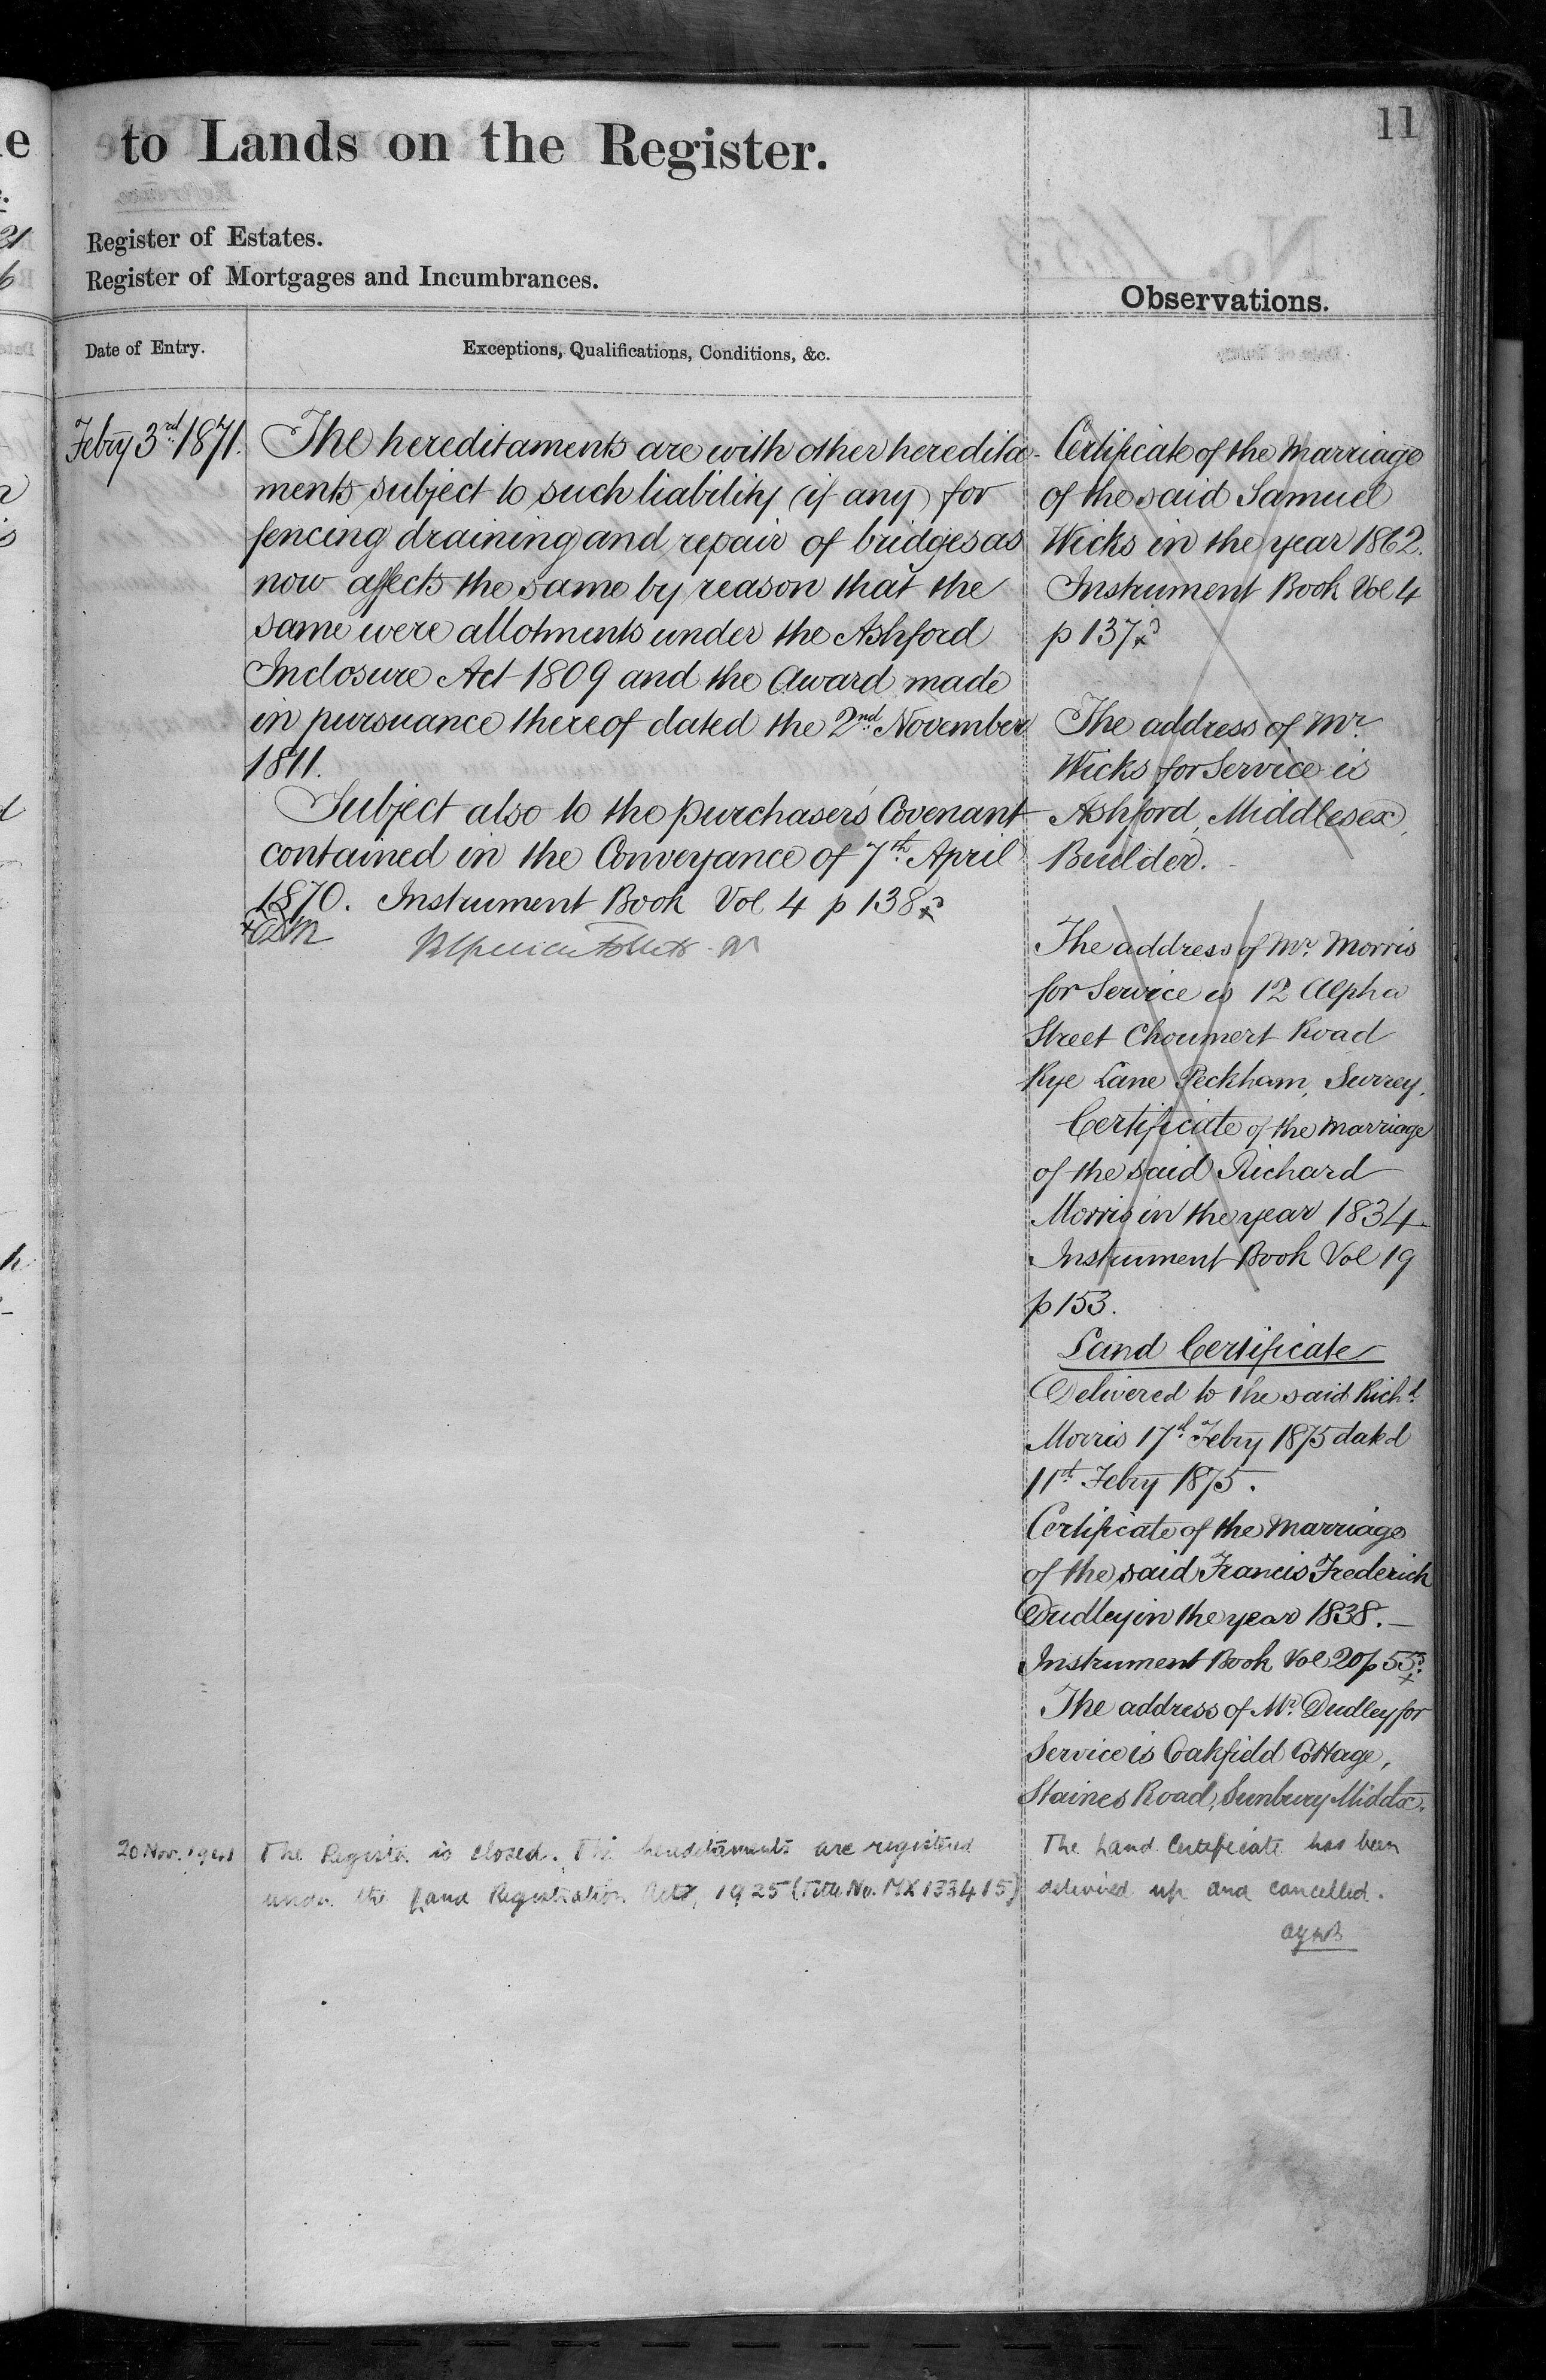 11
to Lands on the Register.
Register of Estates.
Register of Mortgages and Incumbrances.
Observations.
Date of Entry.
Exceptions, Qualifications, Conditions, &c.
Febry 3rd 1871.
The hereditaments are with other heredita-
ments subject to such liability (if any) for
fencing draining and repair of bridges as
now affects the same by reason that the
same were allotments under the Ashford
Inclosure Act 1809 and the Award made
in pursuance thereof dated the 2nd November
1811.
Subject also to the purchaser's Covenant
contained in the Conveyance of 7th April
1870. Instrument Book Vol 4 p 138
Certificate of the Marriage
of the said Samuel
Wicks in the year 1862.
Instrument Book Vol 4
p 137
The address of Mr.
Wicks for Service is
Ashford, Middlesex,
Builder.
The address of Mr. Morris
for Service is 12 Alpha
Street Choumert Road
Rye Lane Peckham, Surrey.
Certificate of the Marriage
of the said Richard
Morris in the year 1834
Instrument Book Vol 19
p 153.
Land Certificate
Delivered to the said Richd
Morris 17th Febry 1875 dated
11th Febry 1875.
Certificate of the Marriage
of the said Francis Frederick
Dudley in the year 1838.—
Instrument Book Vol 20 p 55
The address of Mr. Dudley for
Service is Oakfield Cottage,
Staines Road, Sunbury Middx.
20 Nov.
The Register is closed. The hereditaments are registered
under the Land Registration Act, 1925 (Title No. MX133415)
The Land Certificate has been
delivered up and cancelled.